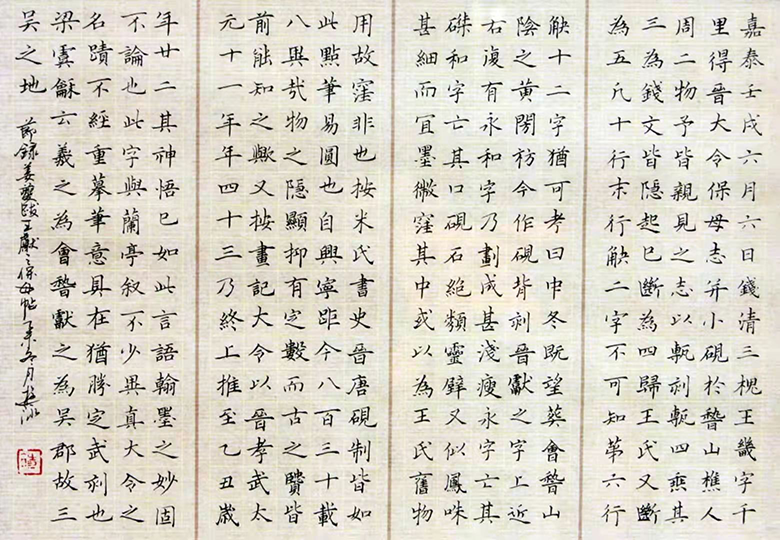 嘉泰壬戌六月六日錢清三槐王畿字千
里得晉大令保母志并小硯於稽山樵人
周二物予皆親見之志以甎刻甎四垂其
三為錢文皆隱起已斷為四歸王氏又斷
為五凡十行末行缺二字不可知第六行
缺十二字猶可考曰中冬既望葬會稽山
陰之黃閍枋今作硯背刻晉獻之字上近
右復有永和字乃劃成甚淺瘦永字亡其
磔和字亡其口硯石絕類靈璧又似鳳咮
甚細而宜墨微窪其中或以為王氏舊物
用故窪非也按米氏書史晉唐硯制皆如
此點筆易圓也自興寧距今八百三十載
八異哉物之隱顯抑有定數而古之賢皆
前能知之歟又按畫記大令以晉孝武太
元十一年年四十三乃終上推至乙丑歲
年廿二其神悟已如此言語翰墨之妙固
不論也此字與蘭亭敘不少異真大令之
名蹟不經重摹筆意具在猶勝定武刻也
梁虞龢云羲之為會稽獻之為吳郡故三
吳之地 節錄姜夔跋王獻之保母帖 冬月